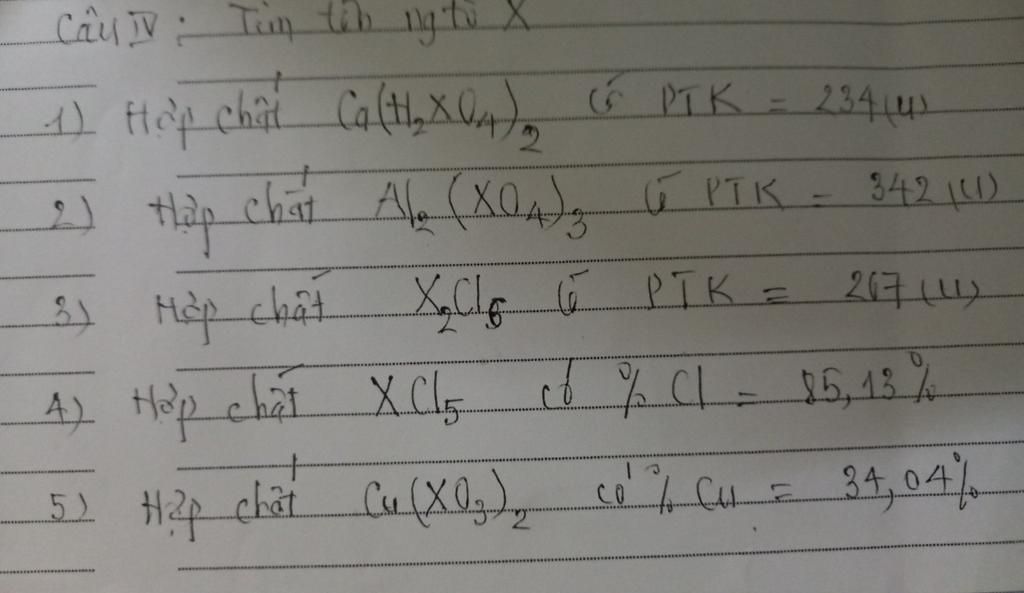 Câu IV: Tìm tên ng tử X
1) Hợp chất Ca(H₂XO₄)₂ có PTK = 234(u)
2) Hợp chất Al₂(XO₄)₃ có PTK = 342(u)
3) Hợp chất X₂Cl₆ có PTK = 267(u)
4) Hợp chất XCl₅ có % Cl = 85,13%
5) Hợp chất Cu(XO₃)₂ có % Cu = 34,04%